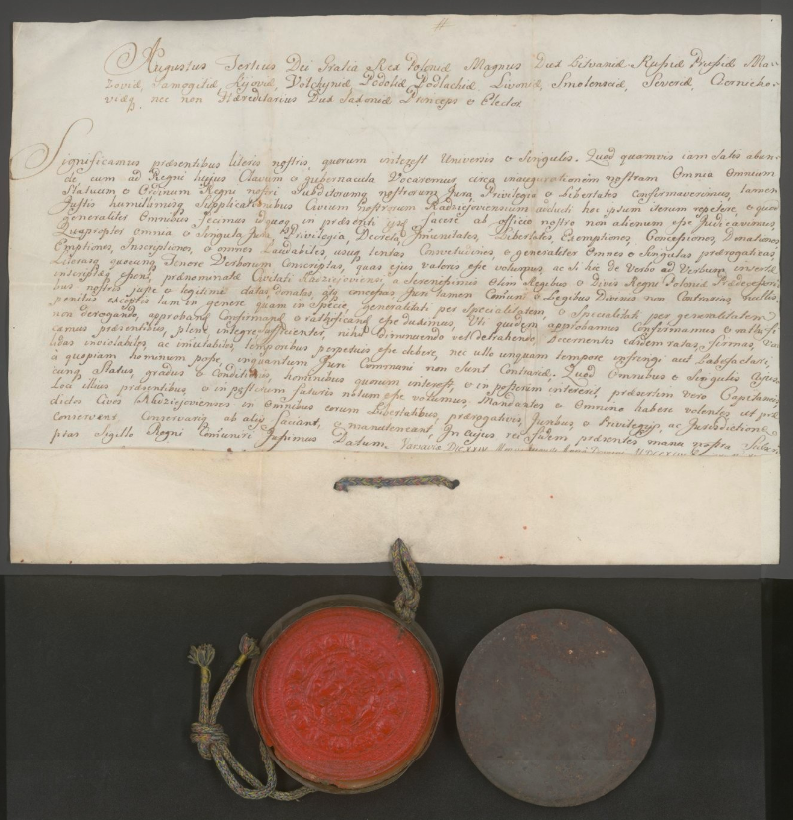 Augustus Tertius Dei Gratia Rex Poloniæ Magnus Dux Litvaniæ Russiæ Prussiæ Ma-
zoviæ, Samogitiæ Kijoviæ, Volchyniæ Podoliæ Podlachiæ, Livoniæ, Smolensciæ, Severiæ, Czerniecho-
viæq, nec non Hæreditarius Dux Saxoniæ Princeps & Elector
Significamus præsentibus literis nostris, quorum interest Universis & Singulis. Quod quamvis iam satis abun-
de cum ad Regni hujus Clavum & gubernacula Vocaremur, circa inaugurationem nostram Omnia Omnium
Statuum & Ordinum Regni nostri Subditorumq nostrorum Jura Privilegia & Libertates Confirmaverimus, tamen
Justis humilimisq Supplicationibus Civium Nostrorum Radziejoviensium adducti hoc ipsum iterum repetere, & quod
generaliter Omnibus fecimus id in præsenti facere ab officio nostro non alienum esse Judicavimus,
Quapropter omnia & Singula Jura, Privilegia, Decreta, Immunitates, Libertates, Exemptiones, Concessiones, Donationes
Emptiones, Inscriptiones, & omnes Laudabiles, usuq tentas Consvetudines, & generaliter Omnes & Singulas prærogativas,
Literasq quocunq Tenore Verborum Conscriptas, quas ejus valoris esse volumus, ac si hic de Verbo ad Verbum
inscriptæ essent, prænominatæ Civitati Radziejoviensi a Serenissimis Olim Regibus & Regni Poloniæ Prædecessori-
bus nostris juste & legitime datas, donatas, concessas Juri tamen Comuni & Legibus Divinis non Contrarias nullis
penitus exceptis tam in genere quam in Specie, generalitati per Specialitatem & Specialitati per generalitatem
non derogando, approband Confirmand & ratificand esse duximus, Uti quidem approbamus Confirmamus & ratifi-
camus præsentibus, plene integre Sufficienter, nihil diminuendo vel detrahendo. Decernentes eadem ratas, firmas, va-
lidas inviolabiles, ac immutabiles, temporibus perpetuis esse debere, nec ullo unquam tempore infringi aut Labefactari
a quopiam hominum posse, inquantum Juri Communi non Sunt Contrariæ. Quod Omnibus & Singulis cujus-
cunq Status, gradus & Conditionis hominibus quorum interest, & in posterum intererit, præsertim vero Capitaneis
Loci illius præsentibus & in posterum futuris notum esse volumus. Mandantes & Omnino habere volentes, ut præ-
dictos Cives Radziejovienses in Omnibus eorum Libertatibus, prærogativis, Juribus & Privilegijs, ac Jurisdictione
conservent Conservariq ab alijs faciant, & manuteneant, In Cujus rei fidem præsentes manu nostra Subscri-
ptas Sigillo Regni Comuniri Jussimus Datum.